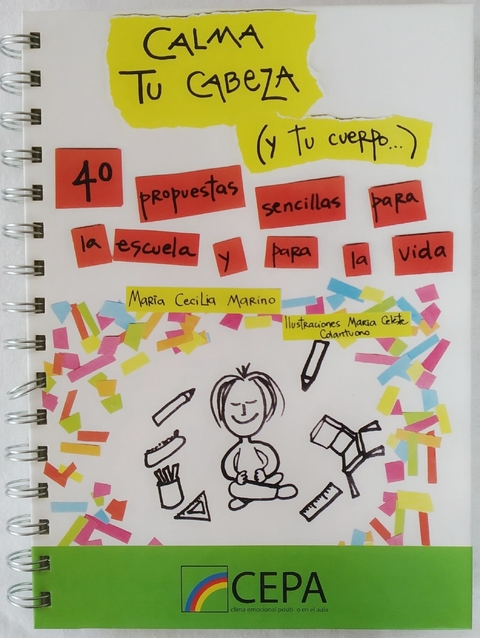 CALMA
TU CABEZA
(y tu cuerpo...)
40 propuestas sencillas para
la escuela y para la vida
María Cecilia Marino
Ilustraciones María Celeste
Colantuono
CEPA
clima emocional positivo en el aula